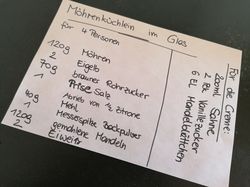 Möhrenküchlein im Glas
für 4 Personen
120g Möhren
2 Eigelb
70g brauner Rohrzucker
1 Prise Salz
Abrieb von ½ Zitrone
40g Mehl
1 Messerspitze Backpulver
120g gemahlene Mandeln
2 Eiweiß
Für die Creme:
200ml Sahne
2 Pck Vanillezucker
6 EL Mandelblättchen